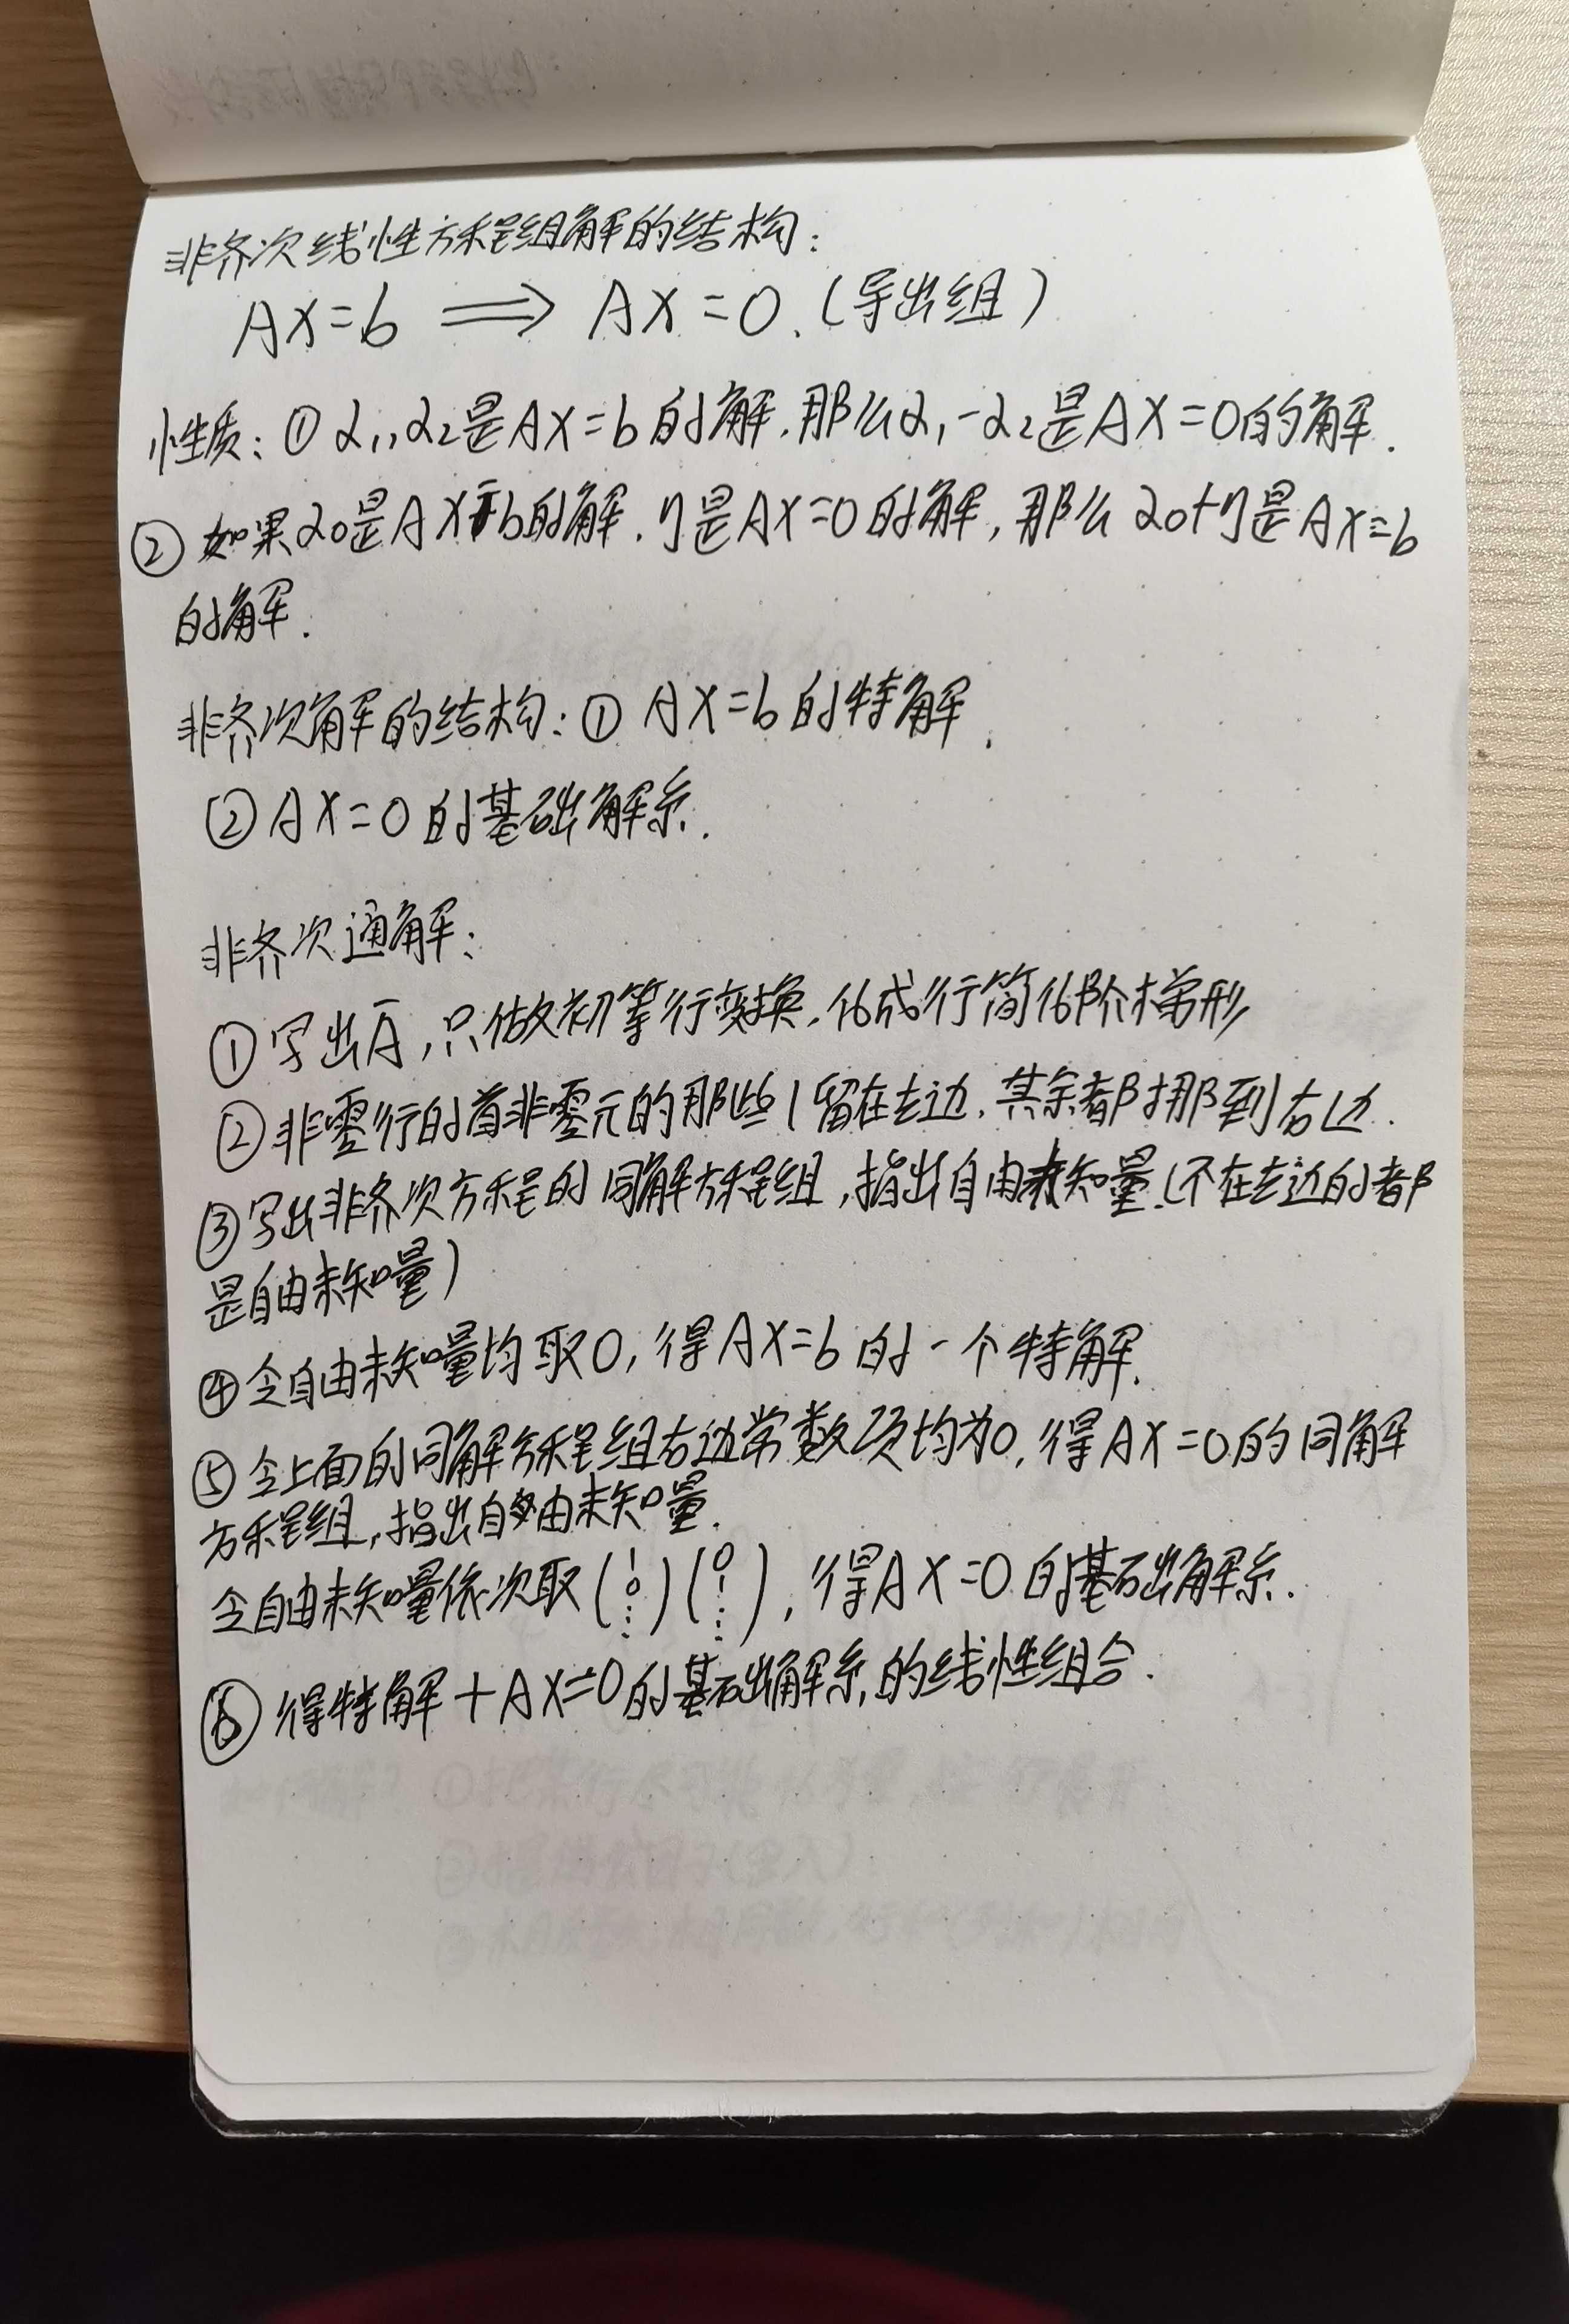 非齐次线性方程组解的结构:
AX=b ⟹ AX=0.(导出组)
性质:① α₁,α₂是AX=b的解.那么α₁-α₂是AX=0的解.
② 如果α₀是AX=b的解.η是AX=0的解,那么α₀+η是AX=b
的解.
非齐次解的结构:① AX=b的特解.
② AX=0的基础解系.
非齐次通解:
① 写出Ā,只做初等行变换.化成行简化阶梯形
② 非零行的首非零元的那些1留在左边.其余都挪到右边.
③ 写出非齐次方程的同解方程组,指出自由未知量.(不在左边的都
是自由未知量)
④ 令自由未知量均取0,得AX=b的一个特解.
⑤ 令上面的同解方程组右边常数项均为0,得AX=0的同解
方程组,指出自由未知量.
令自由未知量依次取(1 0 ⋮)(0 1 ⋮),得AX=0的基础解系.
⑥ 得特解+AX=0的基础解系的线性组合.